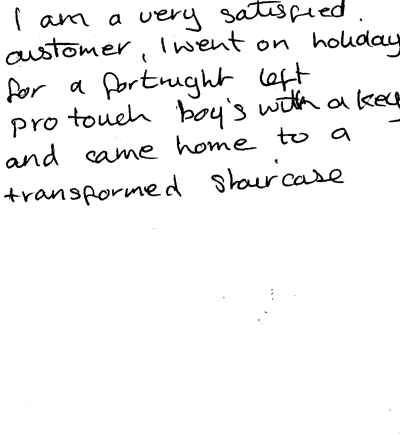 I am a very satisfied.
customer, I went on holiday
for a fortnight left
pro touch boy's with a key
and came home to a
transformed staircase